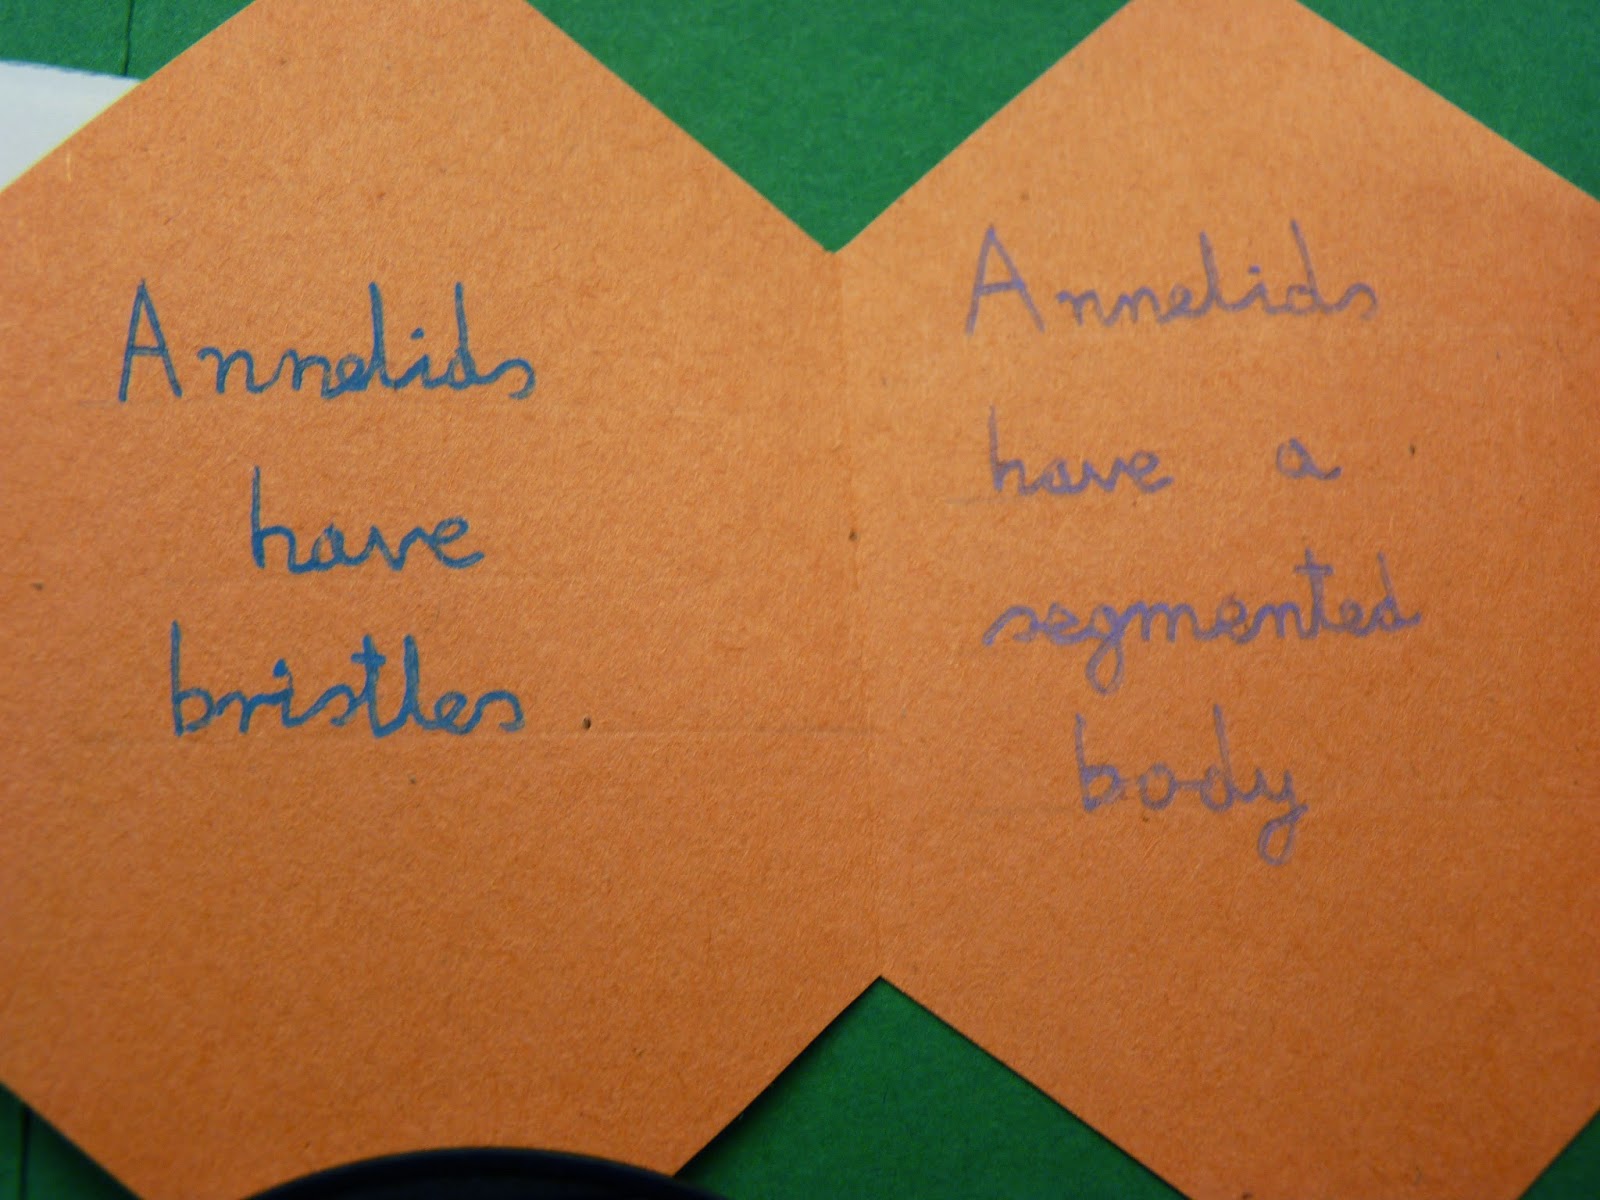 Annelids
have
bristles
Annelids
have a
segmented
body